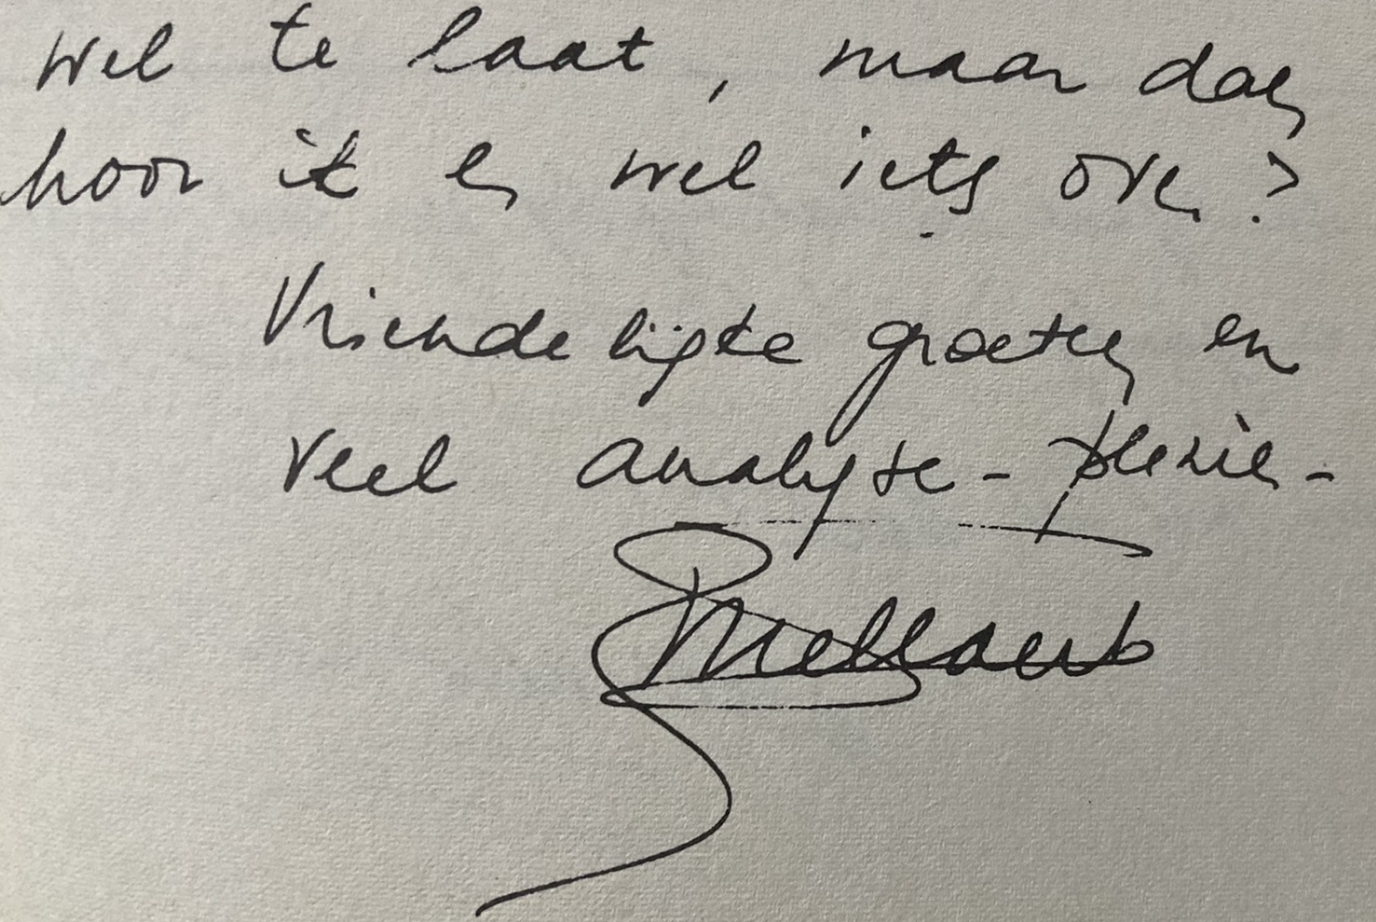 wel te laat, maar dan
hoor ik er wel iets over?
Vriendelijke groeten en
veel analyse-plezier -